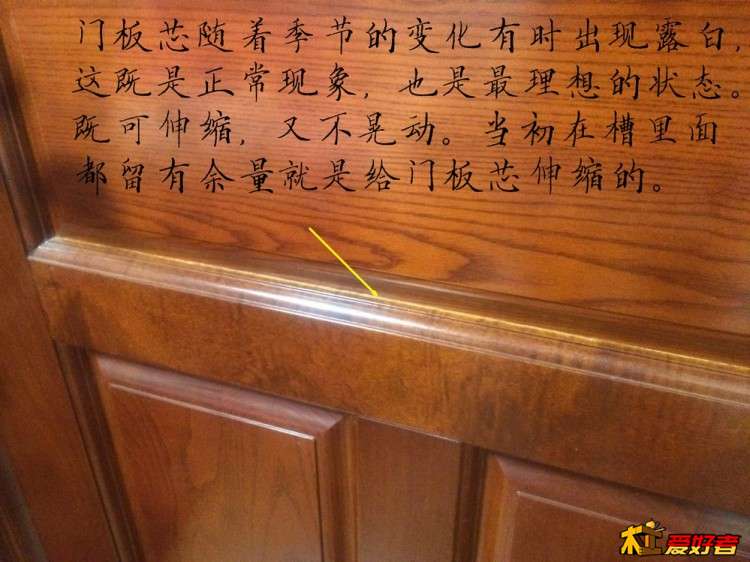 门板芯随着季节的变化有时出现露白，
这既是正常现象，也是最理想的状态。
既可伸缩，又不晃动。当初在槽里面
都留有余量就是给门板芯伸缩的。
木工爱好者